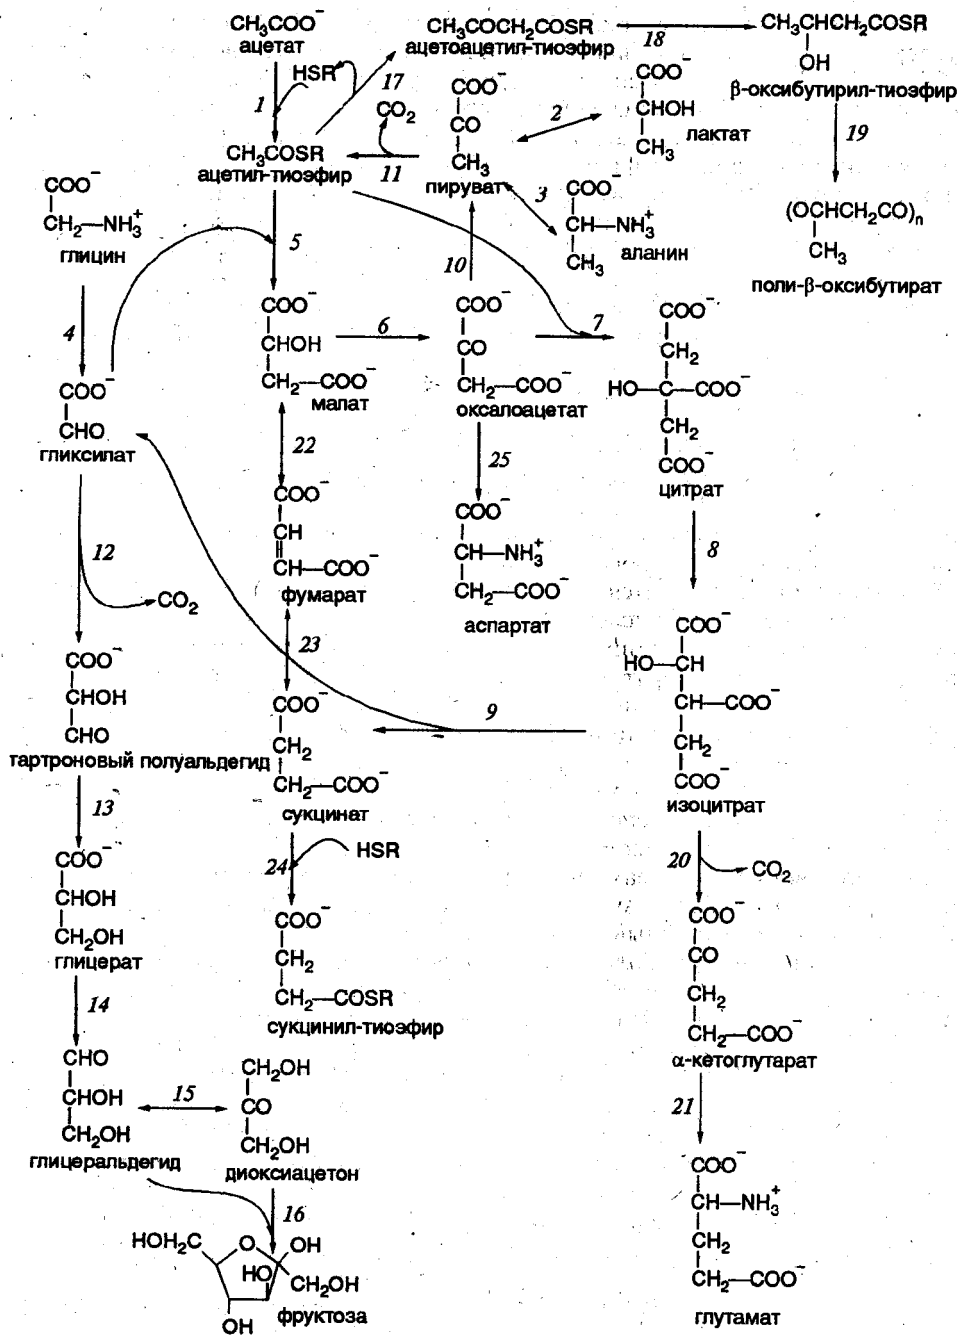 CH₃COO⁻
ацетат
1
HSR
17
CH₃COCH₂COSR
ацетоацетил-тиоэфир
18
CH₃CHCH₂COSR
OH
β-оксибутирил-тиоэфир
19
(OCHCH₂CO)n
CH₃
поли-β-оксибутират
CH₃COSR
ацетил-тиоэфир
CO₂
11
COO⁻
CO
CH₃
пируват
2
COO⁻
CHOH
CH₃
лактат
3
COO⁻
CH—NH₃⁺
CH₃
аланин
COO⁻
CH₂—NH₃⁺
глицин
4
COO⁻
CHO
гликсилат
5
COO⁻
CHOH
CH₂—COO⁻
малат
6
10
COO⁻
CO
CH₂—COO⁻
оксалоацетат
7
COO⁻
CH₂
HO—C—COO⁻
CH₂
COO⁻
цитрат
22
COO⁻
CH
CH—COO⁻
фумарат
25
COO⁻
CH—NH₃⁺
CH₂—COO⁻
аспартат
8
12
CO₂
23
COO⁻
HO—CH
CH—COO⁻
CH₂
COO⁻
изоцитрат
9
COO⁻
CHOH
CHO
тартроновый полуальдегид
COO⁻
CH₂
CH₂—COO⁻
сукцинат
13
COO⁻
CHOH
CH₂OH
глицерат
24
HSR
COO⁻
CH₂
CH₂—COSR
сукцинил-тиоэфир
20
CO₂
COO⁻
CO
CH₂
CH₂—COO⁻
α-кетоглутарат
14
CHO
CHOH
CH₂OH
глицеральдегид
15
CH₂OH
CO
CH₂OH
диоксиацетон
21
COO⁻
CH—NH₃⁺
CH₂
CH₂—COO⁻
глутамат
16
HOH₂C
O
OH
HO
CH₂OH
OH
фруктоза